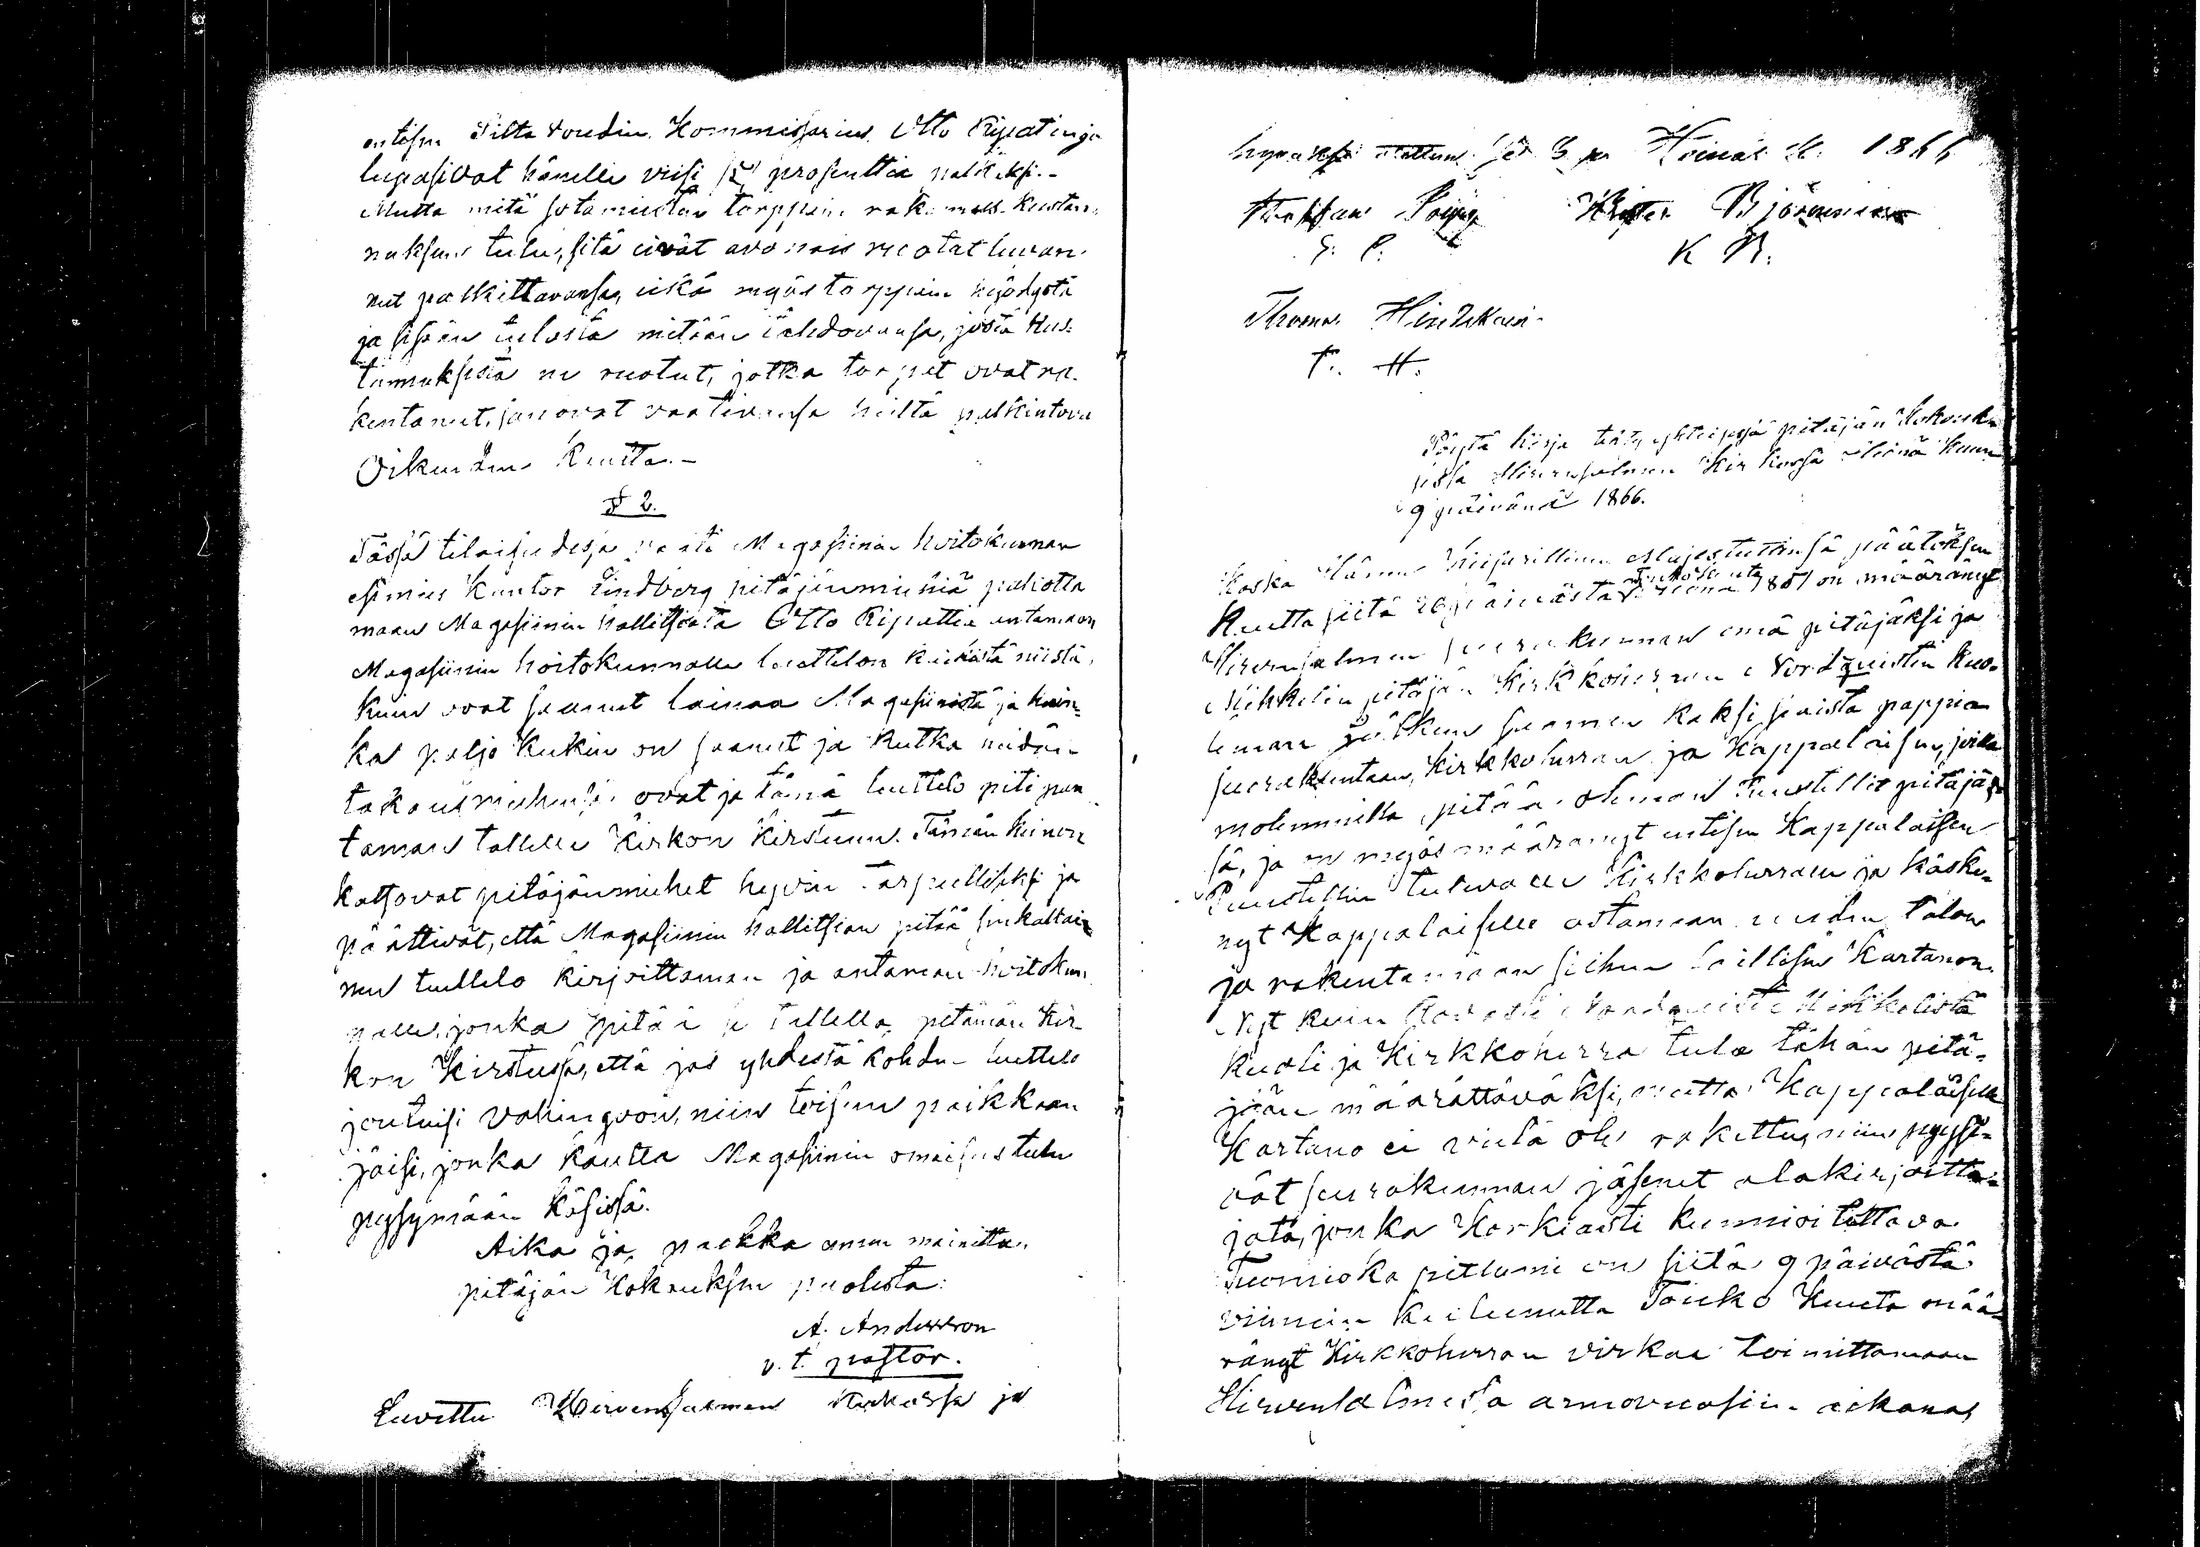 entisen Silta voudin Kommisarius Otto Ripatin ja
lupasivat hänelle viisi (5) prosenttia palkaksi.-
Mutta mitä sotamiesten torppein rakennus kustan-
nuksiin tulee, sitä eivät avonais ruotat luvan-
nut palkittavansa, eikä myös torppein hyödystä
ja sisään tulosta mitään tahdovansa, josta kus-
tannuksista ne ruotut, jotka torpat ovat ra-
kentanet, sanovat vaativansa heiltä palkintova
Oikeuden Kautta.-
§ 2.
Tässä tilaisudessa Magasiinin hoitokunnan
esimies Kantor Lindberg pitäjänmiehiä pakotta
maan Magasiinin hallitsiata Otto Ripattia antamaan
Magasiinin hoitokunnalle luettelon kaikista niistä,
kuin ovat saanut lainaa Magasiinista ja kuin-
ka paljo kukin on saanut ja kutka neidän
takausmiehensä ovat ja tämä luettelo piti pan-
taman tallelle Kirkon Kirstuun. Tämän keinon
katsovat pitäjänmiehet hyvin tarpeelliseksi ja
päättivät, että Magasiinin hallitsian pitää senkaltai-
nen luettelo kirjoittaman ja antaman hoitokun
nalle, jonka pitää se tallella pitämän Kir
kon Kirstussa, että jos yhdestä kohden luettelo
joutuisi vahingoon, niin toiseen paikkaan
jäisi, jonka kautta Magasiinin omaisus tulee
pysymään käsissä.
Aika ja paikka ennen mainittu.
pitäjän Kokouksen puolesta:
A. Andersson
v. t. pastor.
Luettu Hirvensalmen Kirkossa ja
hyväksi 8 p. Heinäk. 1866
Staffan
S. P. Krister Björninen
K B.
Thomas Hindikain-
T. H.
Pöytä kirja tehty yhteisessä pitäjän Kokouksessa
Hirvensalmen Kirkossa Heinä Kuun
9 päivänä 1866.
Koska Hänen Keisarillinen Majestettinsä päätöksen
Kautta siitä 26 päivästä Toukokuuta 1851 on määrännyt
Hirvensalmen seurakunnan emä pitäjäksi ja
Mikkelin pitäjän Kirkkoherran Nordquistin kuo-
leman jälkeen saamen kaksi pappia
seurakuntaan, Kirkkoherran ja Kappalaisen, joilla
molemmilla pitää oleman Puustellit pitäjäs-
sä, ja on myös määrännyt entisen Kappalaisen
Puustellin tulevalle Kirkkoherralle ja käske-
nyt Kappalaiselle ostamaan uuden talon
ja rakentamaan siihen laillisen Kartanon.
Nyt kuin Rovasti Nordquisti Mikkelistä
kuoli ja Kirkkoherra tulee tähän pitä-
jään määrättäväksi, mutta Kappalaisen
Kartano ei vielä ole rakettu, niin pyysi-
vät seurakunnan jäsenet alakirjoitta-
jata, jonka Korkiasti kunnioitettava
Tuomiokapitlumi on siitä 9 päivästä
viimein kulunutta Touko Kuuta mää-
rännyt Kirkkoherran virkaa toimittamaan
Hirvensalmessa armovuosiin aikana,